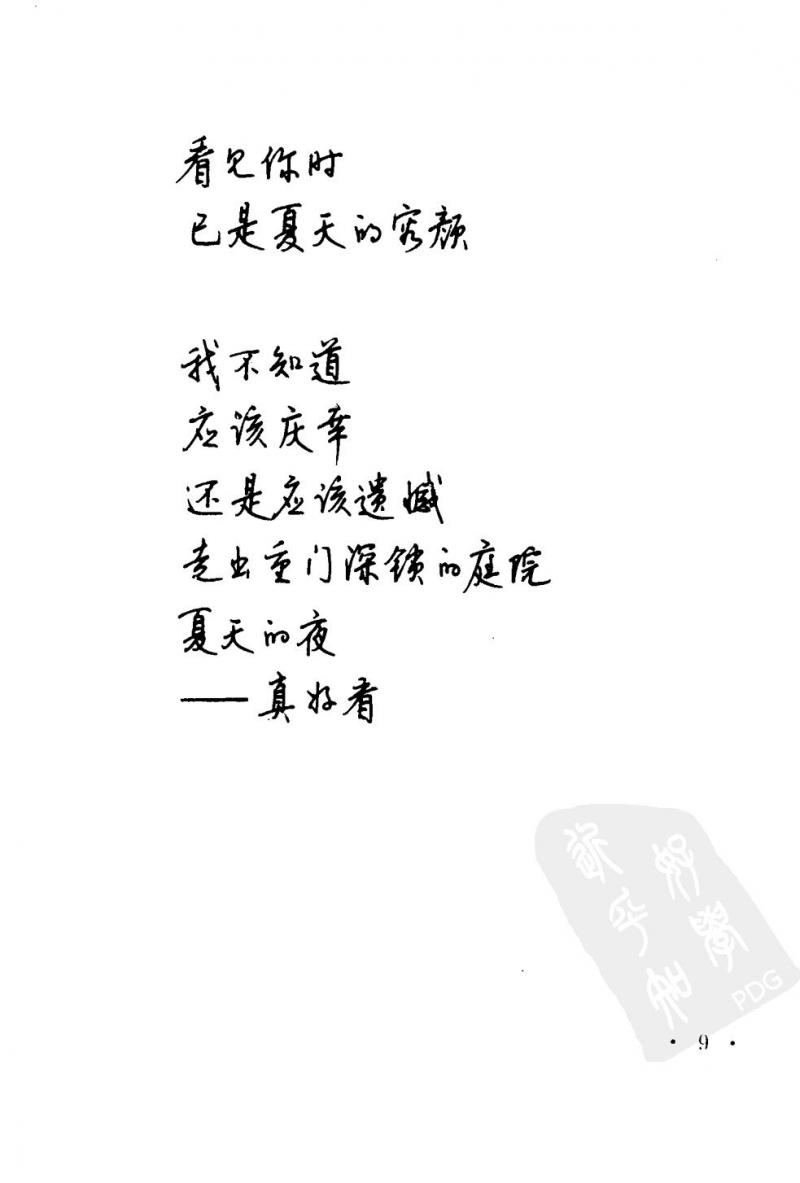 看见你时
已是夏天的容颜
我不知道
应该庆幸
还是应该遗憾
走出重门深锁的庭院
夏天的夜
——真好看
好学
近乎知
PDG
· 9 ·